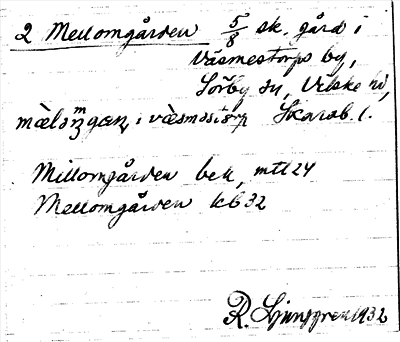 2 Mellomgården 5/8 sk. gård i
Väsmestorps by,
Sörby sn, Vilske hd,
i Skarab. l.
Millomgården bek, mtl 24
Mellomgården kb 32
R. Ljunggren 1932